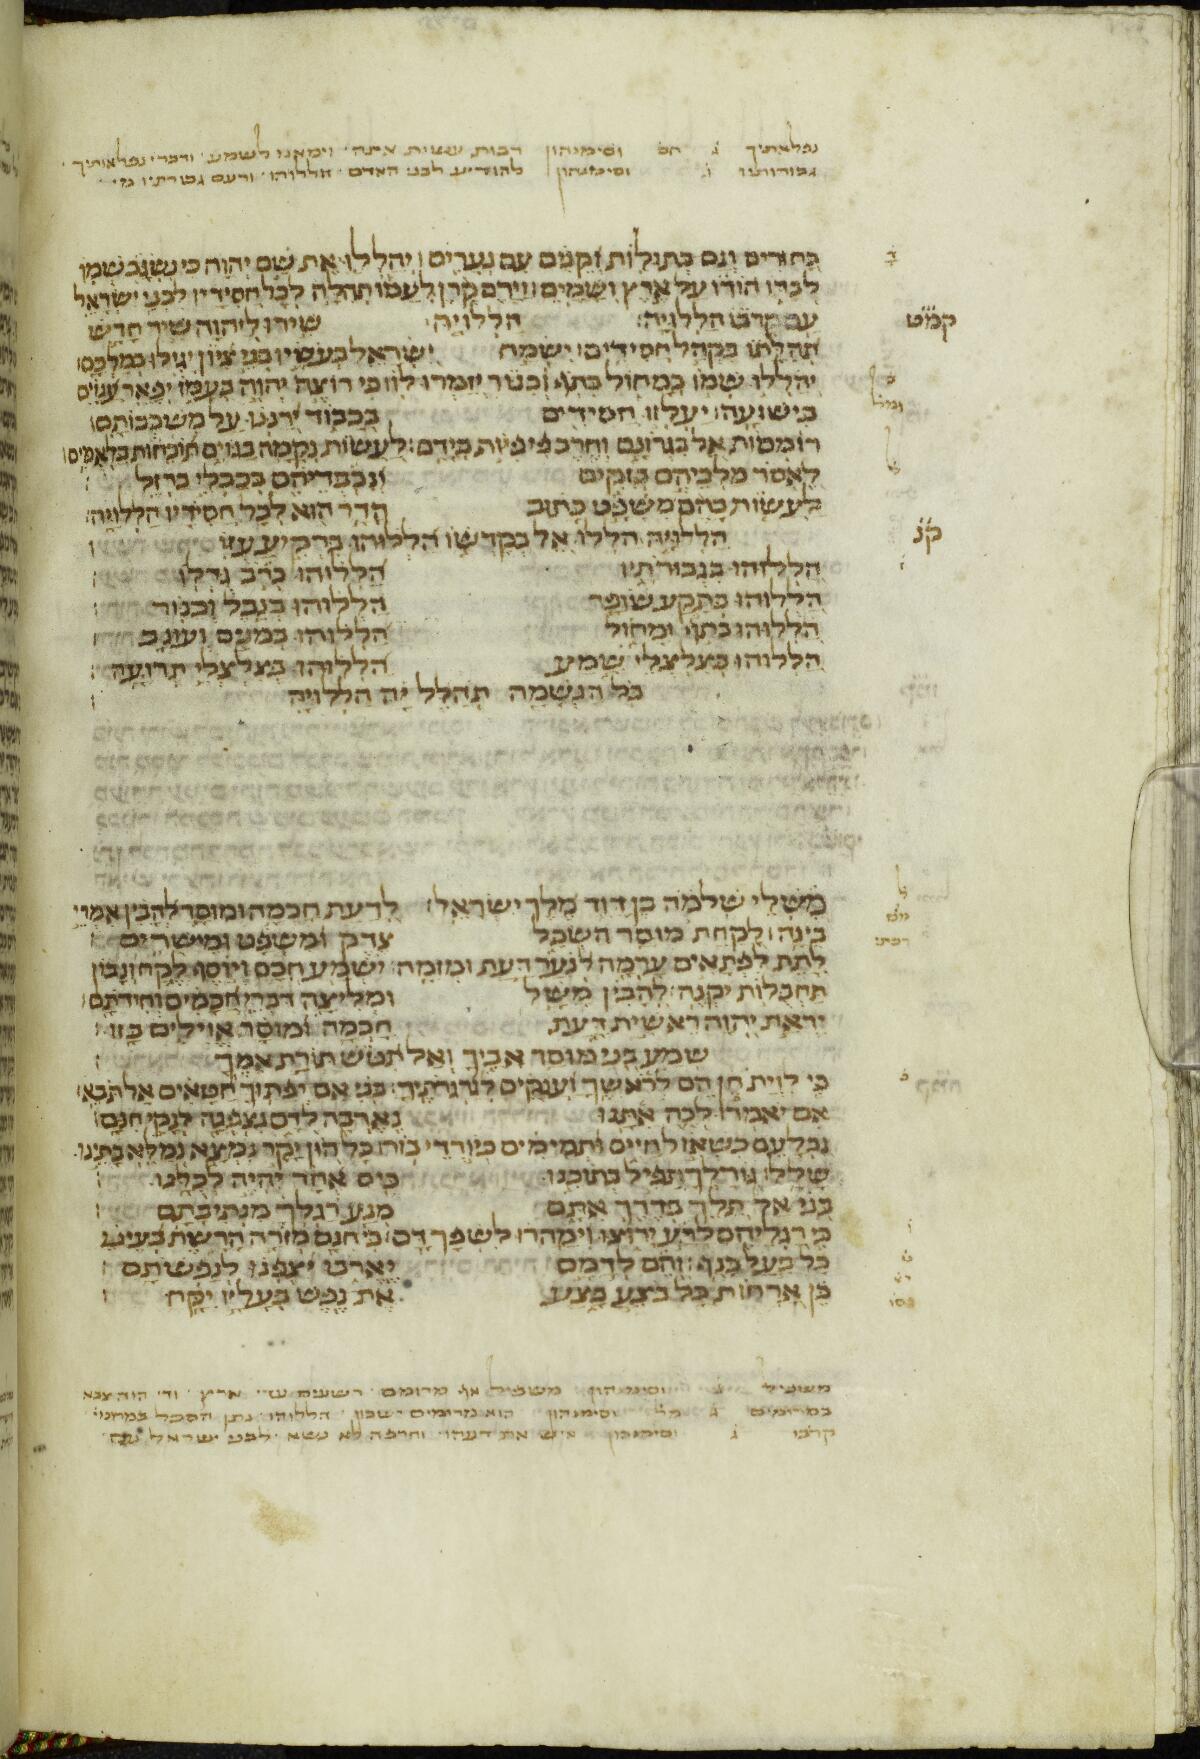 נפלאתיך ג חס וסימנהון רבות עשית אתה וימאנו לשמע ודברי נפלאותיך
גבורותיו ג וסימנהון להודיע לבני האדם הללוהו ורעם גבורתיו מי
בחורים וגם בתולות זקנים עם נערים יהללו את שם יהוה כי נשגב שמו
לבדו הודו על ארץ ושמים וירם קרן לעמו תהלה לכל חסידיו לבני ישראל
עם קרבו הללויה הללויה שירו ליהוה שיר חדש
קמט
תהלתו בקהל חסידים ישמח ישראל בעשיו בני ציון יגילו במלכם
יהללו שמו במחול בתף וכנור יזמרו לו כי רוצה יהוה בעמו יפאר ענוים
בישועה יעלזו חסידים בכבוד ירננו על משכבותם
רוממות אל בגרונם וחרב פיפיות בידם לעשות נקמה בגוים תוכחות בלאמים
לאסר מלכיהם בזקים ונכבדיהם בכבלי ברזל
לעשות בהם משפט כתוב הדר הוא לכל חסידיו הללויה
הללויה הללו אל בקדשו הללוהו ברקיע עזו
קנ
הללוהו בגבורתיו הללוהו כרב גדלו
הללוהו בתקע שופר הללוהו בנבל וכנור
הללוהו בתף ומחול הללוהו במנים ועוגב
הללוהו בצלצלי שמע הללוהו בצלצלי תרועה
כל הנשמה תהלל יה הללויה
משלי שלמה בן דוד מלך ישראל לדעת חכמה ומוסר להבין אמרי
בינה לקחת מוסר השכל צדק ומשפט ומישרים
לתת לפתאים ערמה לנער דעת ומזמה ישמע חכם ויוסף לקח ונבון
תחבלות יקנה להבין משל ומליצה דברי חכמים וחידתם
יראת יהוה ראשית דעת חכמה ומוסר אוילים בזו
שמע בני מוסר אביך ואל תטש תורת אמך
כי לוית חן הם לראשך וענקים לגרגרתיך בני אם יפתוך חטאים אל תבא
אם יאמרו לכה אתנו נארבה לדם נצפנה לנקי חנם
נבלעם כשאול חיים ותמימים כיורדי בור כל הון יקר נמצא נמלא בתינו
שלל גורלך תפיל בתוכנו כיס אחד יהיה לכלנו
בני אל תלך בדרך אתם מנע רגלך מנתיבתם
כי רגליהם לרע ירוצו וימהרו לשפך דם כי חנם מזרה הרשת בעיני
כל בעל כנף והם לדמם יארבו יצפנו לנפשתם
כן ארחות כל בצע בצע את נפש בעליו יקח
משפיל ג וסימנהון משפיל אף מרומם רשעים עדי ארץ
במרומים ג מל וסימנהון הללוהו נתן הסכל במרומים
קרבו ג וסימנהון וחרפה לא נשא לבני ישראל עם